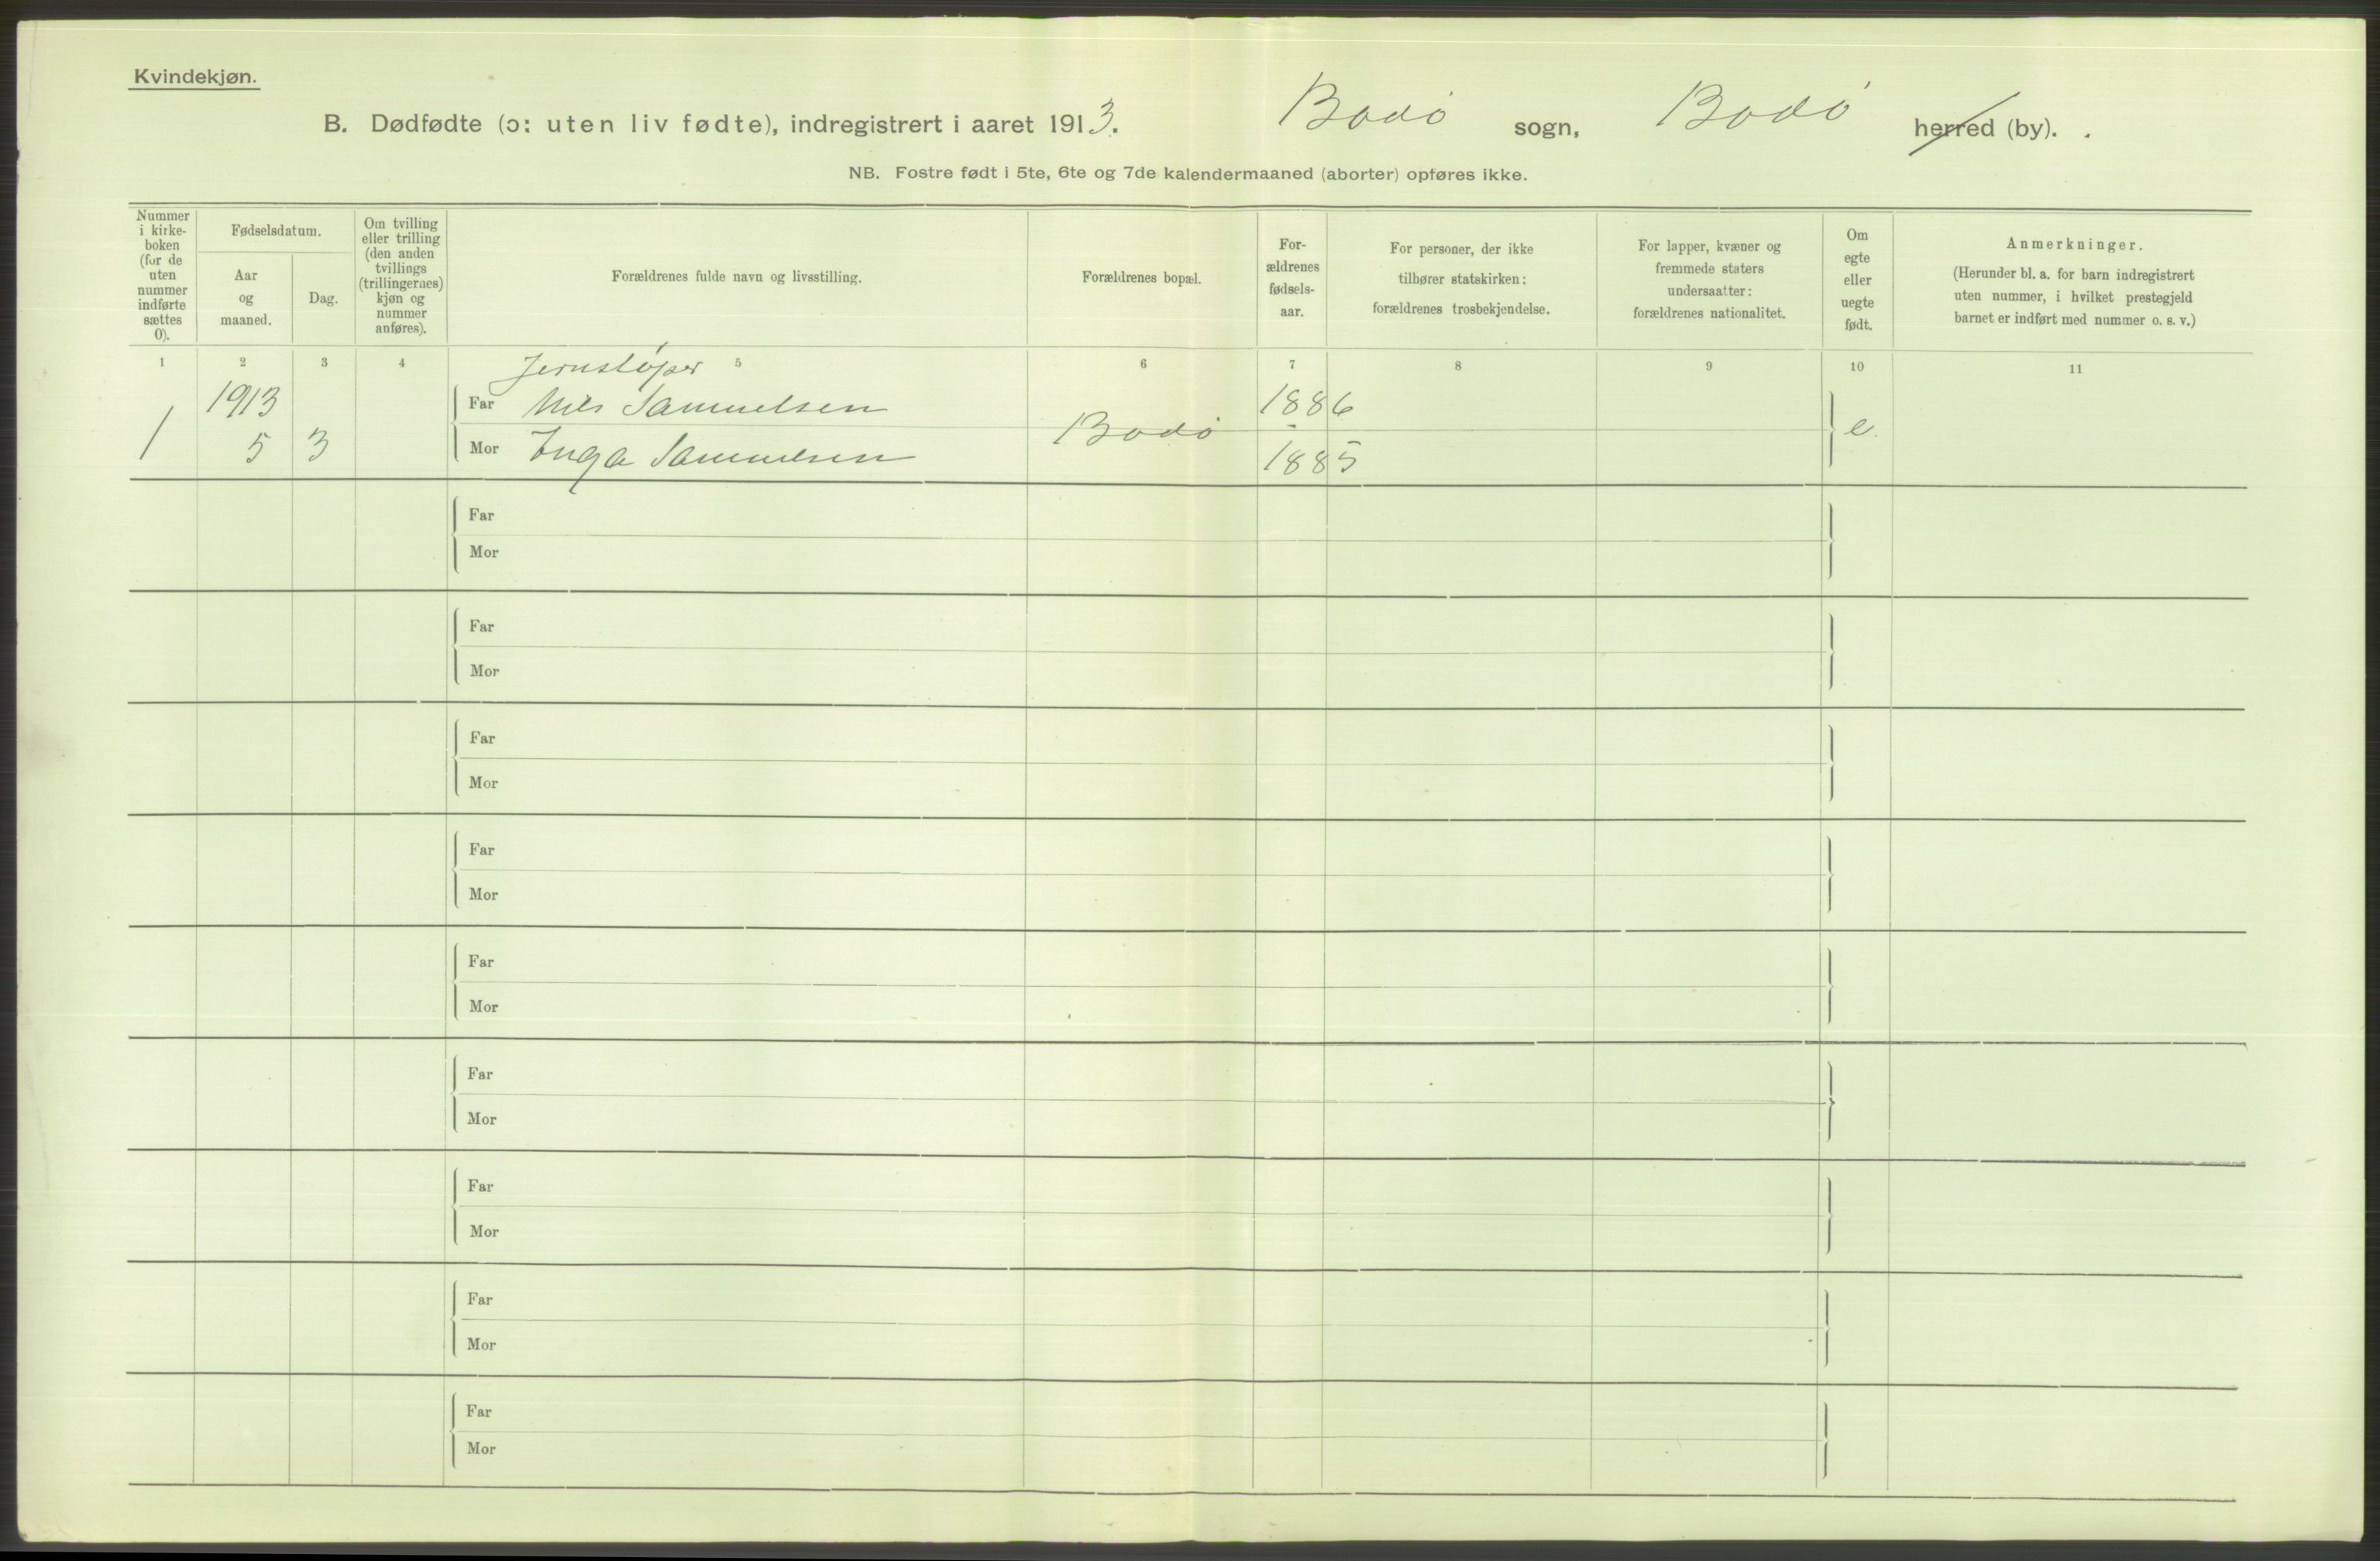 Kvindekjøn.
B. Dødfødte (ɔ: uten liv fødte), indregistrert i aaret 1913. Bodø sogn, Bodø herred (by).
NB. Fostre født i 5te, 6te og 7de kalendermaaned (aborter) opføres ikke.
Nummer
i kirke-
boken
(for de
uten
nummer
indførte
sættes
0).
Fødselsdatum.
Aar
og
maaned.
Dag.
Om tvilling
eller trilling
(den anden
tvillings
(trillingernes)
kjøn og
nummer
anføres).
Forældrenes fulde navn og livsstilling.
Forældrenes bopæl.
For-
ældrenes
fødsels-
aar.
For personer, der ikke
tilhører statskirken:
forældrenes trosbekjendelse.
For lapper, kvæner og
fremmede staters
undersaatter:
forældrenes nationalitet.
Om
egte
eller
uegte
født.
Anmerkninger.
(Herunder bl. a. for barn indregistrert
uten nummer, i hvilket prestegjeld
barnet er indført med nummer o. s. v.)
1 2 3 4 5 6 7 8 9 10 11
Jernstøper
1913 Far Nils Samuelsen 1886
1 5 3 Mor Inga Samuelsen Bodø 1885 e.
Far
Mor
Far
Mor
Far
Mor
Far
Mor
Far
Mor
Far
Mor
Far
Mor
Far
Mor
Far
Mor